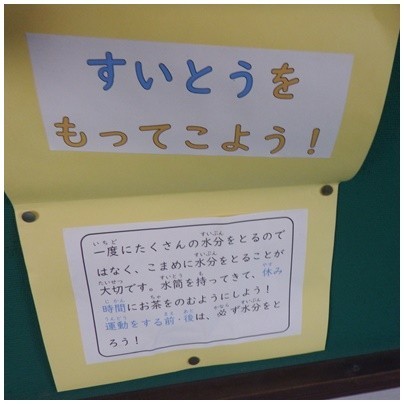 すいとうを
もってこよう！
一度にたくさんの水分をとるので
はなく、こまめに水分をとることが
大切です。水筒を持ってきて、休み
時間にお茶をのむようにしよう！
運動をする前・後は、必ず水分をと
ろう！